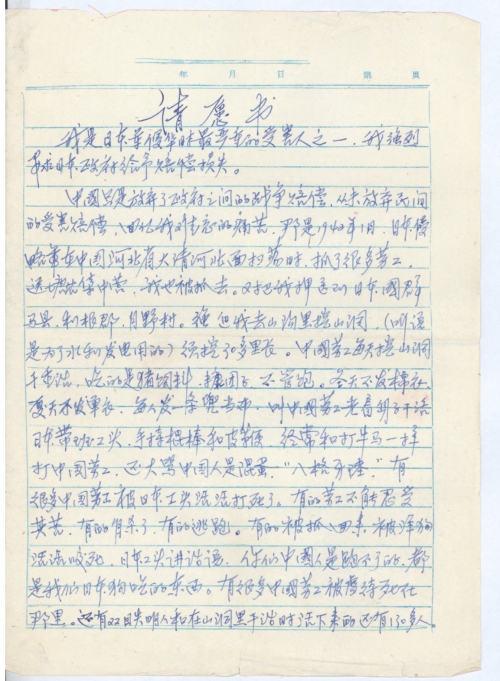 年 月 日 第 页
请愿书
我是日本军侵华时最严重的受害人之一，我强烈
要求日本政府给予赔偿损失。
中国只是放弃了政府之间的战争赔偿，从未放弃民间
的受害赔偿，回忆我刘的痛苦，那是1942年1月，日本侵
略军在中国河北省大清河北面扫荡时，抓了很多劳工，
送塘沽集中营，我也被抓去。对把我押送到日本国群
马县，利根郡，月野村。强迫我去山沟里挖山洞，（听说
是为了水利发电用的）须挖30多里长。中国劳工每天挖山洞
干重活，吃的是猪饲料，糠团子，还管饱。冬天不发棉衣
夏天不发单衣，每人发一条兜当布，叫中国劳工光着肚子干活
日本带班工头，手持棍棒和皮鞭，经常和打牛马一样
打中国劳工，还大骂中国人是混蛋，“八格牙路”，有
很多中国劳工被日本工头活活打死了。有的劳工不能忍受
其苦，有的自杀了，有的逃跑。有的被抓回来被洋狗
活活咬死，日本工头讲话说，你们中国人是跑不了的，都
是我们日本狗吃的东西。有很多中国劳工被虐待死在
那里。还有双目失明人和在山洞里干活时活下来的还有130多人